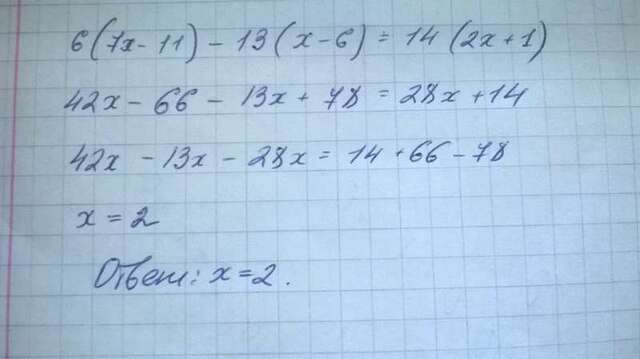 6(7x-11) - 13(x-6) = 14(2x+1)
42x - 66 - 13x + 78 = 28x + 14
42x - 13x - 28x = 14 + 66 - 78
x = 2
Ответ: x = 2.